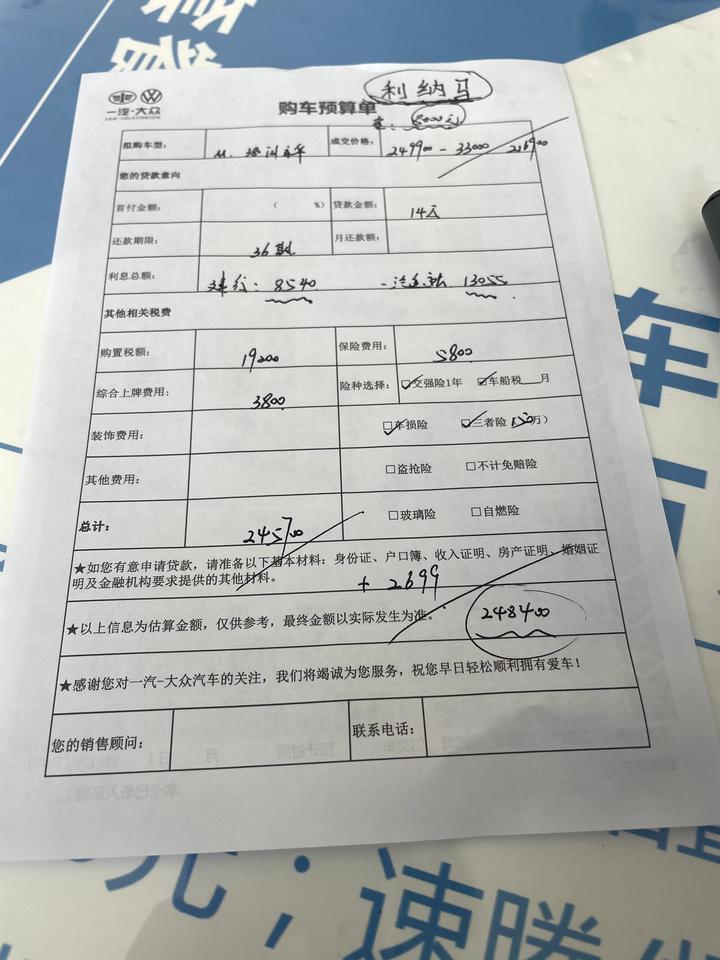 一汽-大众
利纳马
购车预算单
8000元
拟购车型: 成交价格: 249900 - 33000 216900
您的贷款意向
首付金额: ( %) 贷款金额: 14万
还款期限: 36期 月还款额:
利息总额: 建行: 8540 一汽金融 13055
其他相关税费
购置税额: 19200 保险费用: 5800
综合上牌费用: 3800 险种选择: ☑交强险1年 ☑车船税___月
装饰费用: ☑车损险 ☑三者险 ( 万)
其他费用: □盗抢险 □不计免赔险
总计: 245700 □玻璃险 □自燃险
★如您有意申请贷款，请准备以下基本材料: 身份证、户口簿、收入证明、房产证明、婚姻证
明及金融机构要求提供的其他材料。
+ 2699
★以上信息为估算金额，仅供参考，最终金额以实际发生为准。
248400
★感谢您对一汽-大众汽车的关注，我们将竭诚为您服务，祝您早日轻松顺利拥有爱车!
您的销售顾问: 联系电话:
车
元；速腾